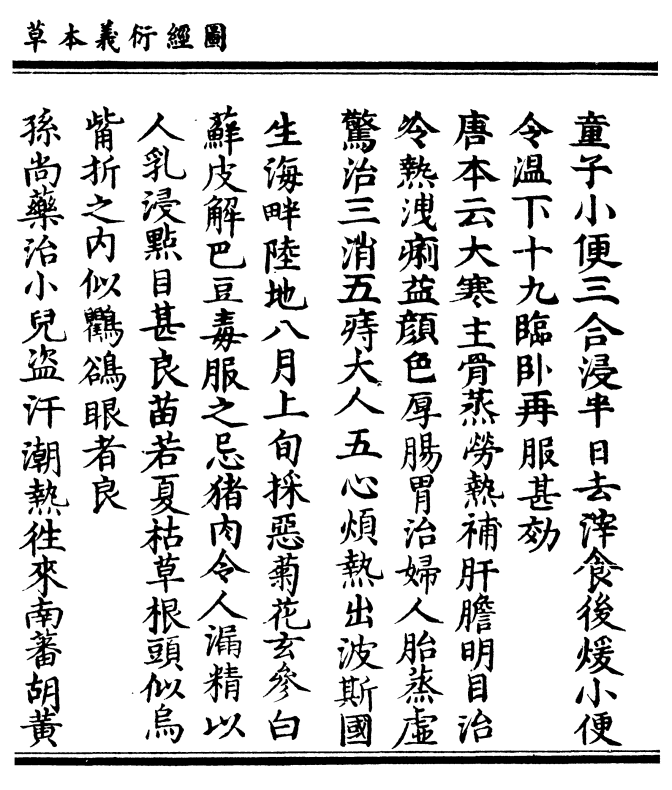 圖經衍義本草
童子小便三合浸半日去滓食後煖小便
令溫下十九臨卧再服甚効
唐本云大寒主骨蒸勞熱補肝膽明目治
冷熱洩痢益顔色厚腸胃治婦人胎蒸虛
驚治三消五痔大人五心煩熱出波斯國
生海畔陸地八月上旬採惡菊花玄參白
蘚皮解巴豆毒服之忌猪肉令人漏精以
人乳浸點目甚良苗若夏枯草根頭似烏
觜折之内似鸜鵒眼者良
孫尚藥治小兒盜汗潮熱徃來南蕃胡黄